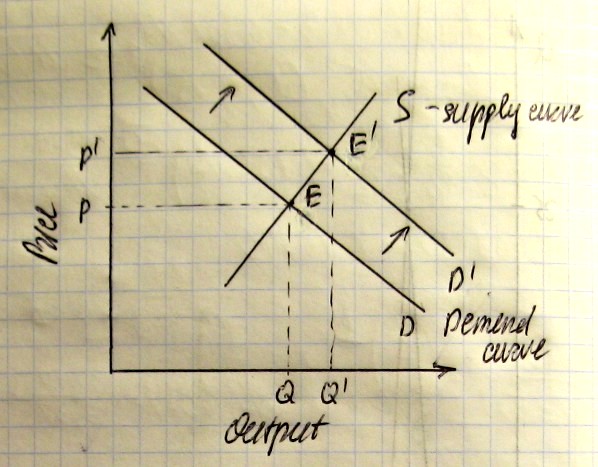 S - supply curve
P'
E'
P
E
Price
D'
D Demend
curve
Q Q'
Output